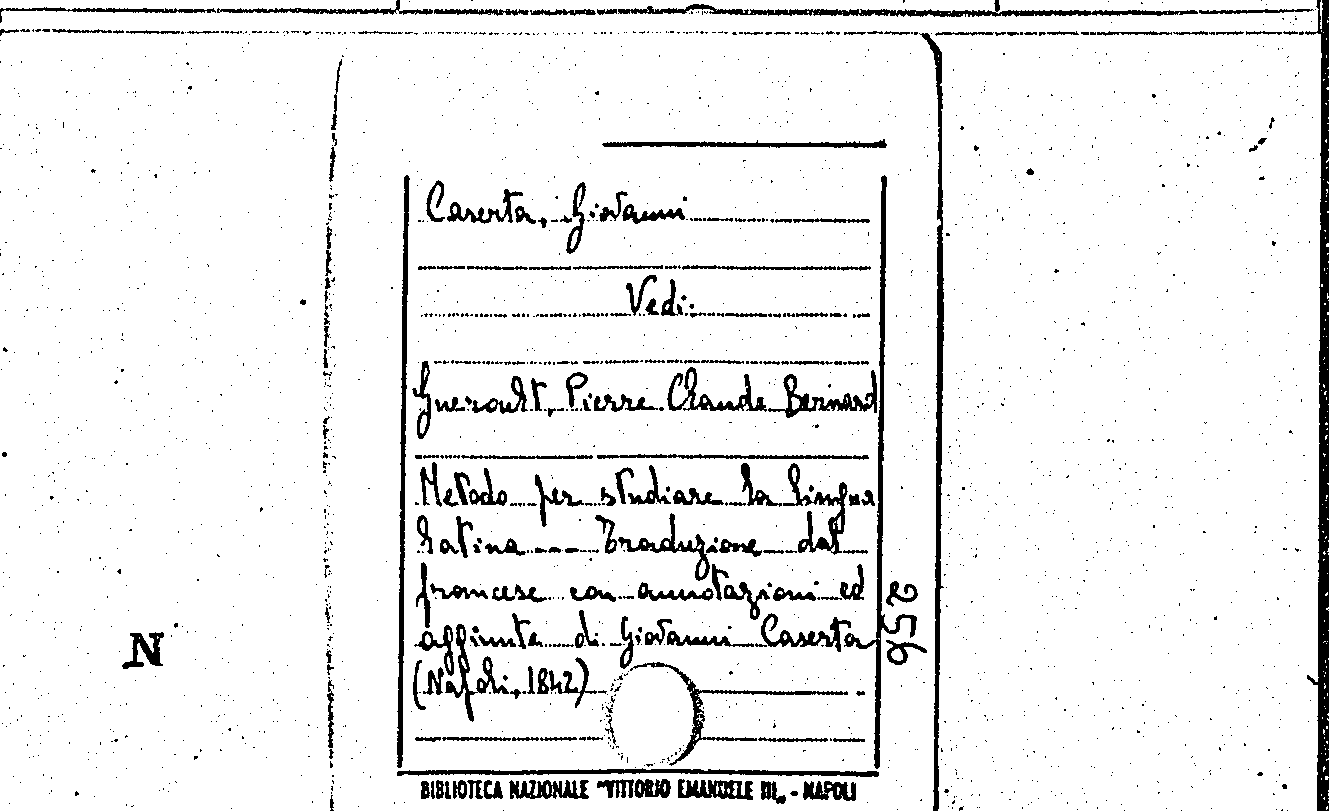 Caserta, Giovanni
Vedi:
Gueroult, Pierre Claude Bernard
Metodo per studiare la lingua
latina --- Traduzione dal
francese con annotazioni ed
aggiunte di Giovanni Caserta
(Napoli, 1842)
256
N
BIBLIOTECA NAZIONALE "VITTORIO EMANUELE III„ - NAPOLI